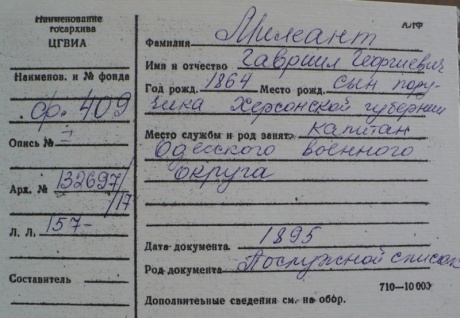 Наименование
госархива
ЦГВИА
Наименов. и № фонда
ф. 409
Опись № I
Арх. № 132697/17
Л. Л. 157-
Составитель
АЛФ
Фамилия Милеант
Имя и отчество Гавриил Георгиевич
Год рожд. 1864 Место рожд. сын пору-
чика Херсонской губернии
Место службы и род занят. капитан
Одесского военного
округа
Дата документа 1895
Род документа Послужной список
710—10 000
Дополнительные сведения см. на обор.